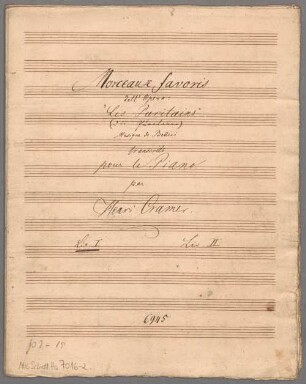 Morceaux favoris
de l'Opera
Les Puritains
Musique de Bellini
pour le Piano
par
Henri Cramer.
Liv. I. Liv. II
6945
Mus. Schott Ha 7016-2